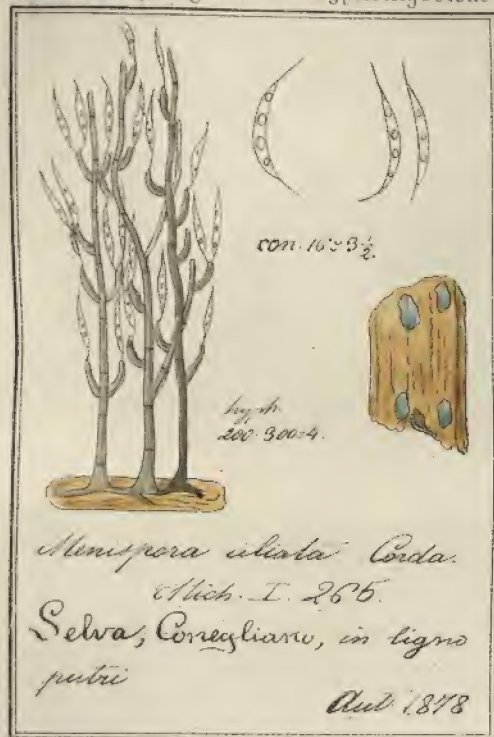 con. 16 ≈ 3 1/2.
hyph.
200-300 = 4.
Menispora ciliata Corda.
Mich. I. 265.
Selva, Conegliano, in ligno
putri
Aut. 1878